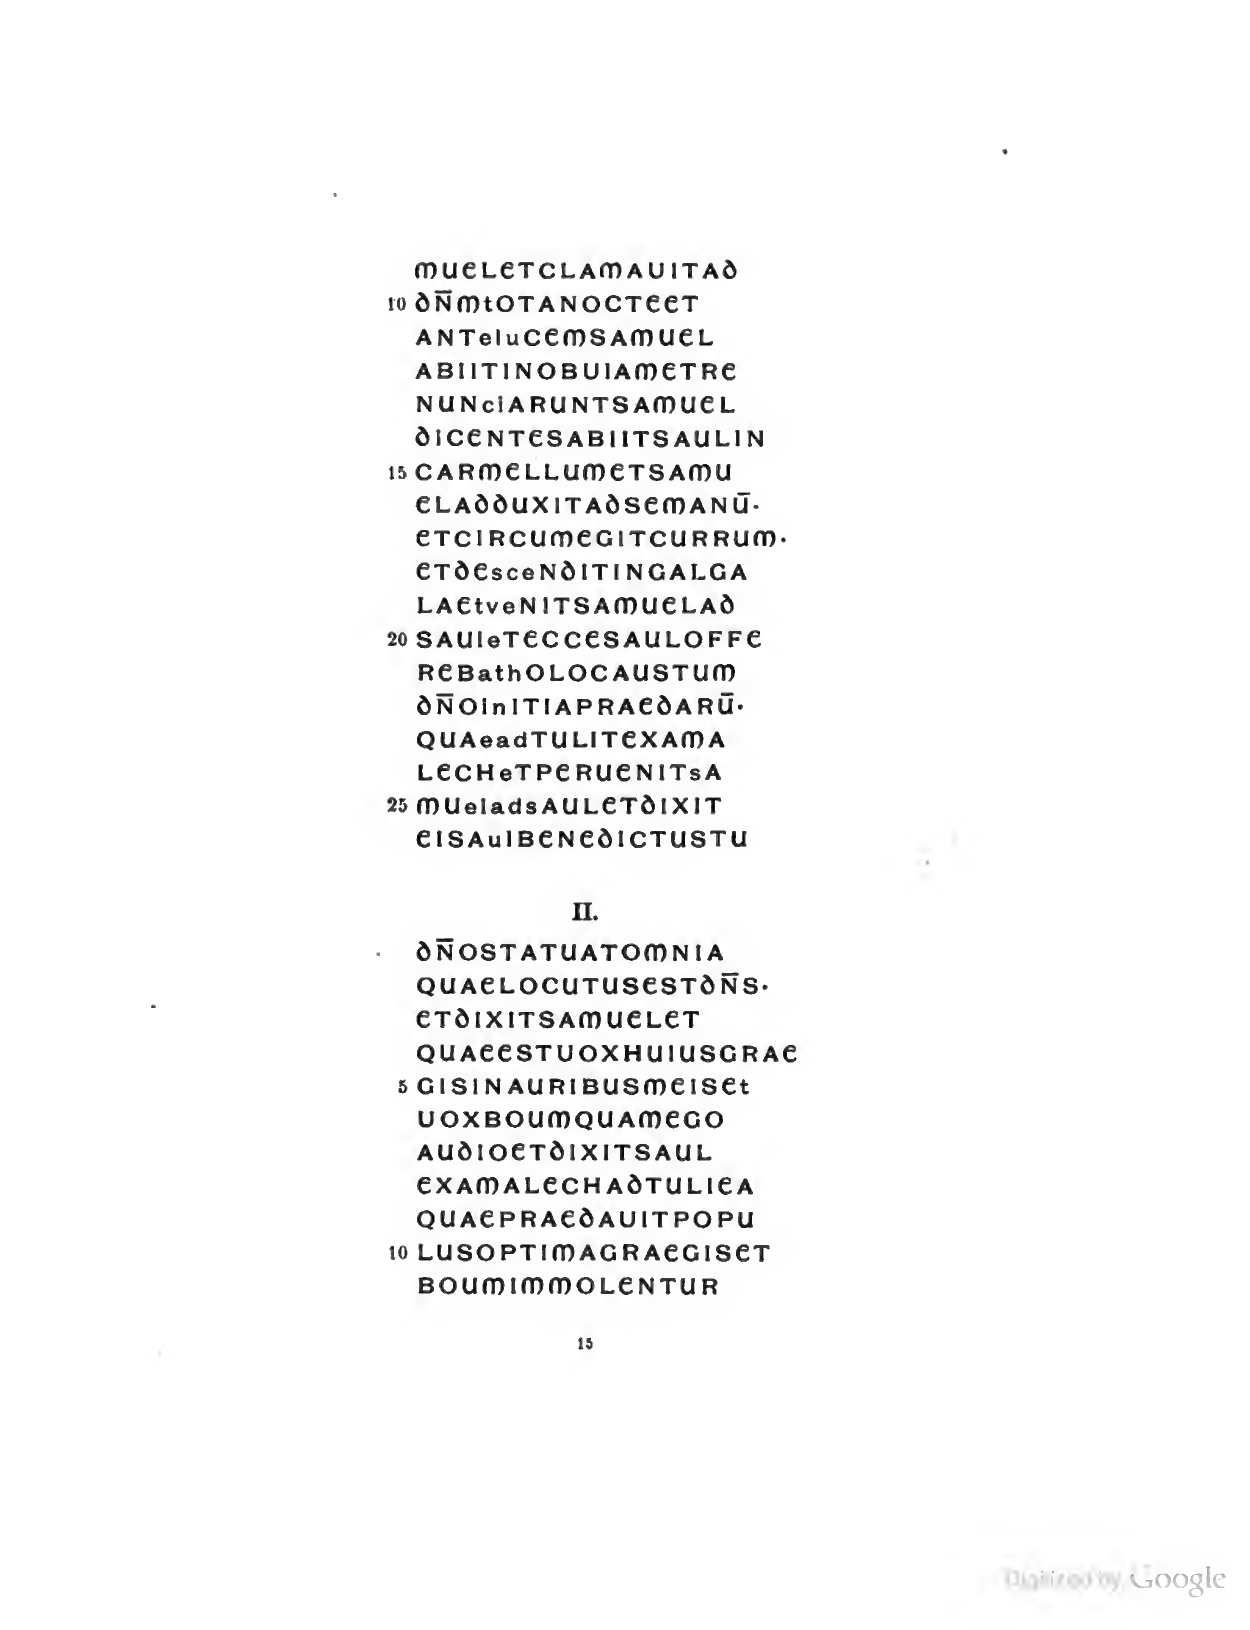 MUELETCLAMAUITAD
10 DN̅MtOTANOCTEET
ANTeluCEMSAMUEL
ABIITINOBUIAMETRE
NUNciARUNTSAMUEL
DICENTESABIITSAULIN
15 CARMELLUMETSAMU
ELADDUXITADSEMANU̅·
ETCIRCUMEGITCURRUM·
ETDEsceNDITINGALGA
LAEtveNITSAMUELAD
20 SAUleTECCESAULOFFE
REBathOLOCAUSTUM
DN̅OinITIAPRAEDARU̅·
QUAeadTULITEXAMA
LECHeTPERUENITsA
25 MUeladsAULETDIXIT
EISAulBENEDICTUSTU
II.
DN̅OSTATUATOMNIA
QUAELOCUTUSESTDN̅S·
ETDIXITSAMUELET
QUAEESTUOXHUIUSGRAE
5 GISINAURIBUSMEISEt
UOXBOUMQUAMEGO
AUDIOETDIXITSAUL
EXAMALECHADTULIEA
QUAEPRAEDAUITPOPU
10 LUSOPTIMAGRAEGISET
BOUMIMMOLENTUR
15
Digitized by Google